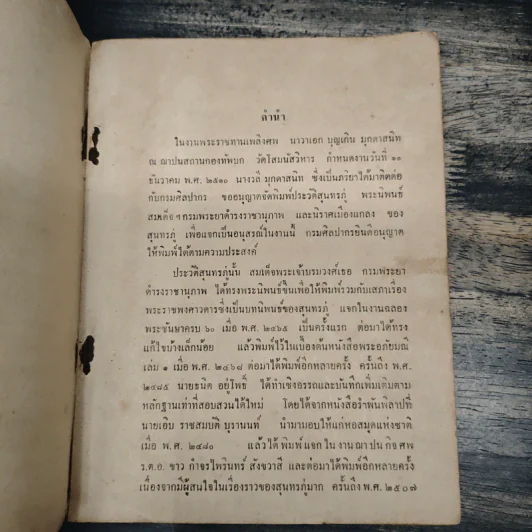 คำนำ
ในงานพระราชทานเพลิงศพ นาวาเอก บุญเกิน มุกดาสนิท
ณ ฌาปนสถานกองทัพบก วัดโสมนัสวิหาร กำหนดงานวันที่ ๑๑
ธันวาคม พ.ศ. ๒๕๑๐ นางรวี มุกดาสนิท ซึ่งเป็นภริยาได้มาติดต่อ
กับกรมศิลปากร ขออนุญาตจัดพิมพ์ประวัติสุนทรภู่ พระนิพนธ์
สมเด็จ ฯ กรมพระยาดำรงราชานุภาพ และนิราศเมืองแกลง ของ
สุนทรภู่ เพื่อแจกเป็นอนุสรณ์ในงานนี้ กรมศิลปากรยินดีอนุญาต
ให้พิมพ์ได้ตามความประสงค์
ประวัติสุนทรภู่นั้น สมเด็จพระเจ้าบรมวงศ์เธอ กรมพระยา
ดำรงราชานุภาพ ได้ทรงพระนิพนธ์ขึ้นเพื่อให้พิมพ์รวมกับเสภาเรื่อง
พระราชพงศาวดารซึ่งเป็นบทนิพนธ์ของสุนทรภู่ แจกในงานฉลอง
พระชันษาครบ ๖๐ เมื่อ พ.ศ. ๒๔๖๕ เป็นครั้งแรก ต่อมาได้ทรง
แก้ไขบ้างเล็กน้อย แล้วพิมพ์ไว้ในเบื้องต้นหนังสือพระอภัยมณี
เล่ม ๑ เมื่อ พ.ศ. ๒๔๖๘ ต่อมาได้พิมพ์อีกหลายครั้ง ครั้นถึง พ.ศ.
๒๔๘๕ นายธนิต อยู่โพธิ์ ได้ทำเชิงอรรถและบันทึกเพิ่มเติมตาม
หลักฐานเท่าที่สอบสวนได้ใหม่ โดยได้จากหนังสือรำพันพิลาปที่
นายเอิบ ราชสมบัติ บูรานนท์ นำมามอบให้แก่หอสมุดแห่งชาติ
เมื่อ พ.ศ. ๒๔๘๐ แล้วได้พิมพ์แจกในงานฌาปนกิจศพ
ร.ต.อ. ขาว กำจรไพรินทร์ สังขวาสี และต่อมาได้พิมพ์อีกหลายครั้ง
เนื่องจากมีผู้สนใจในเรื่องราวของสุนทรภู่มาก ครั้นถึง พ.ศ. ๒๕๐๗